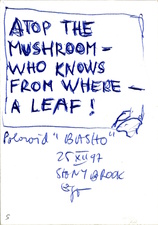 ATOP THE
MUSHROOM –
WHO KNOWS
FROM WHERE –
A LEAF!
Polaroid "BASHO"
25 XII 97
STONY BROOK
5